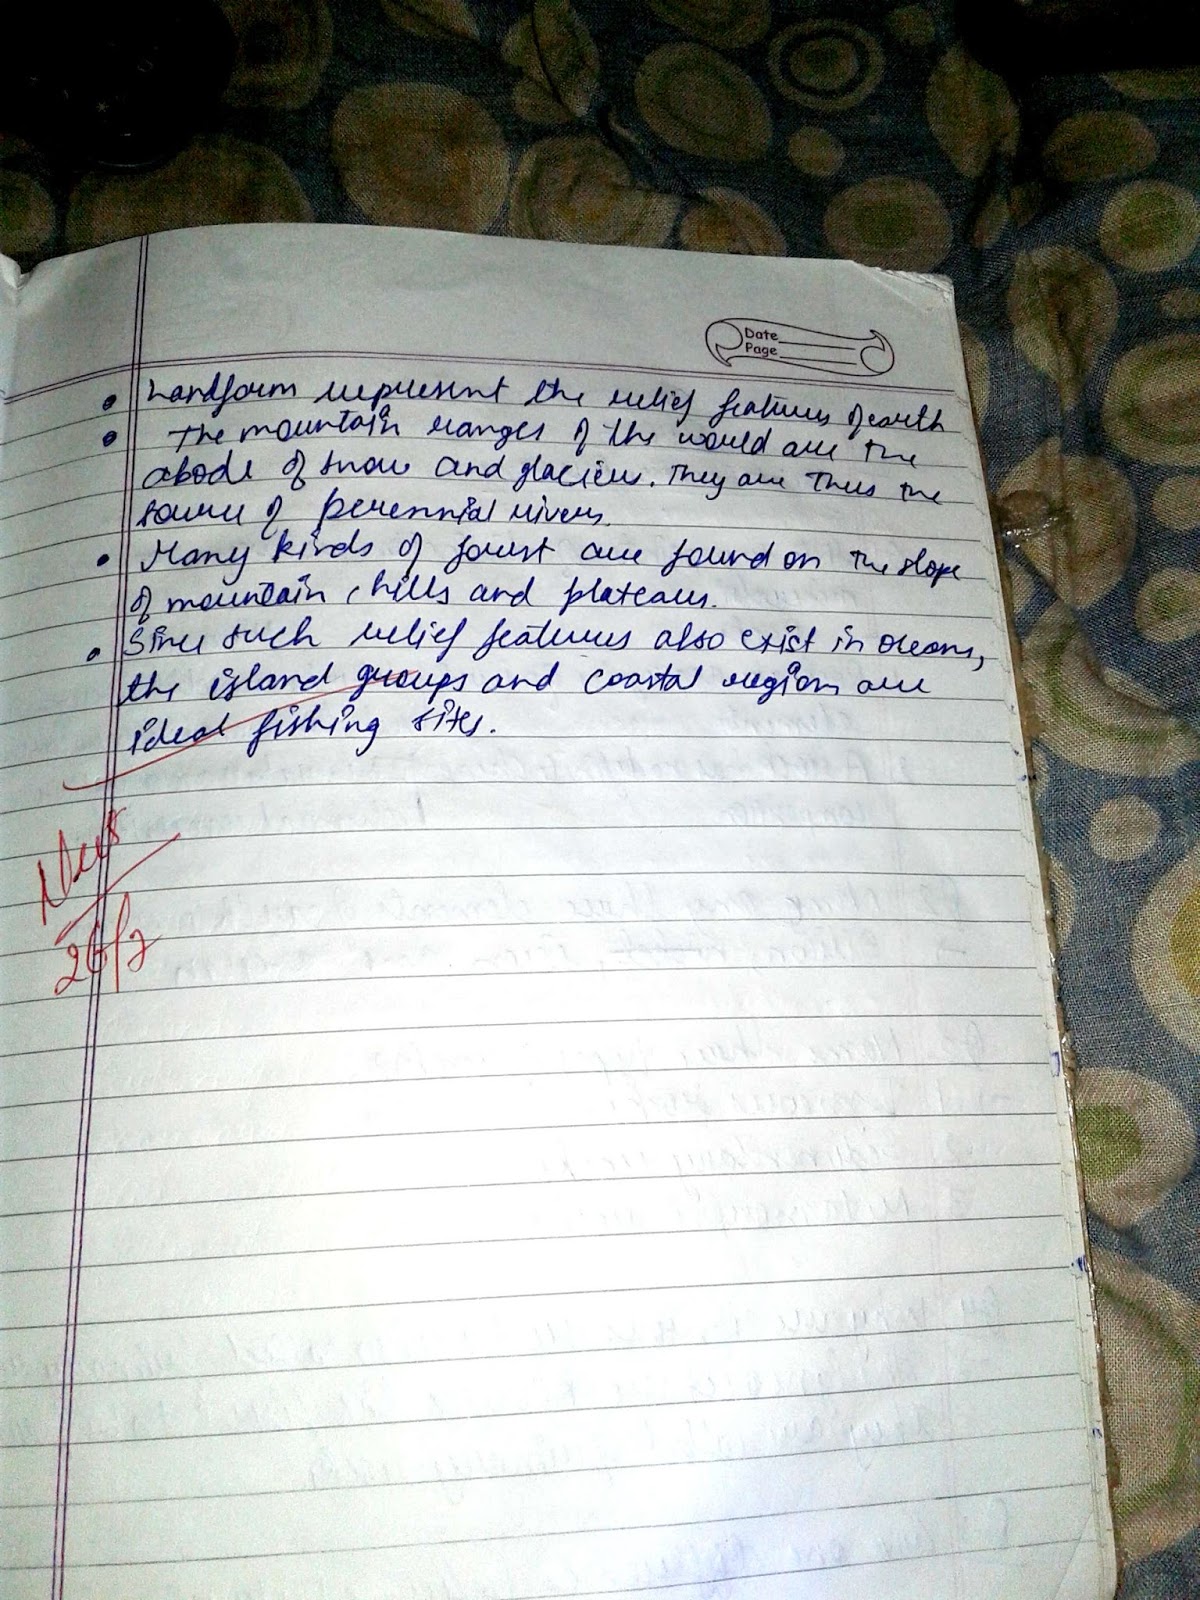 Date
Page
• Landform represent the relief features of earth
• The mountain ranges of the would are the
abode of snow and glaciers. They are Thus the
source of perennial rivers.
• Many kinds of forest are found on the slope
of mountain, hills and plateaus.
• Since such relief features also exist in oceans,
the island groups and coastal region are
ideal fishing sites.
26/2